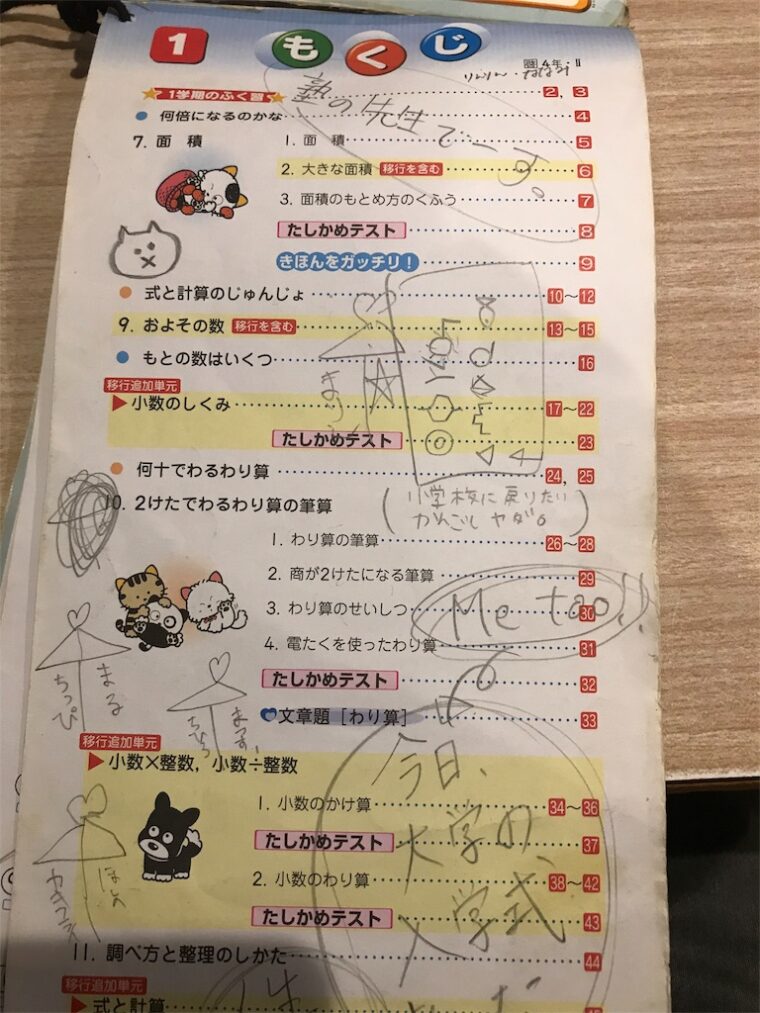 1 もくじ
圏4年・Ⅱ
★1学期のふく習★ 2, 3
● 何倍になるのかな 4
7. 面積 1. 面積 5
2. 大きな面積 移行を含む 6
3. 面積のもとめ方のくふう 7
たしかめテスト 8
きほんをガッチリ! 9
● 式と計算のじゅんじょ 10〜12
9. およその数 移行を含む 13〜15
● もとの数はいくつ 16
移行追加単元
▶小数のしくみ 17〜22
たしかめテスト 23
● 何十でわるわり算 24, 25
10. 2けたでわるわり算の筆算
1. わり算の筆算 26〜28
2. 商が2けたになる筆算 29
3. わり算のせいしつ 30
4. 電たくを使ったわり算 31
たしかめテスト 32
文章題[わり算] 33
移行追加単元
▶小数×整数, 小数÷整数
1. 小数のかけ算 34〜36
たしかめテスト 37
2. 小数のわり算 38〜42
たしかめテスト 43
11. 調べ方と整理のしかた 44
移行追加単元
▶式と計算
塾の先生でーす。
(小学校に戻りたい
ヤダ。)
Me too!!
まる
ちっぴ
今日、
大学の
入学式